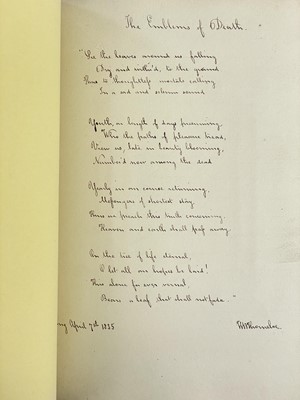 The Emblems of Death.
"See the leaves around us falling
Dry and wither'd, to the ground
Thus to thoughtless mortals calling
In a sad and solemn sound
Youth, on length of days presuming,
Who the paths of pleasure tread,
View us, late in beauty blooming,
Number'd now among the dead
Yearly in our course returning,
Messengers of shortest stay,
Thus we preach this truth concerning,
Heaven and earth shall pass away.
On the tree of life eternal,
O let all our hopes be laid!
This alone for ever vernal,
Bears a leaf that shall not fade."
April 7th 1835